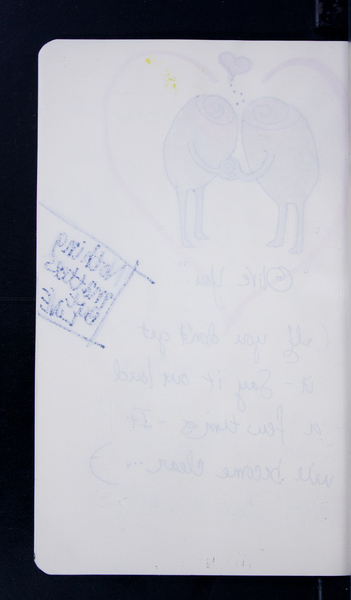 Nothing
matters
but LOVE
"Olive You"
(If you don't get
it - Say it out loud
a few times - It
will become clear...)